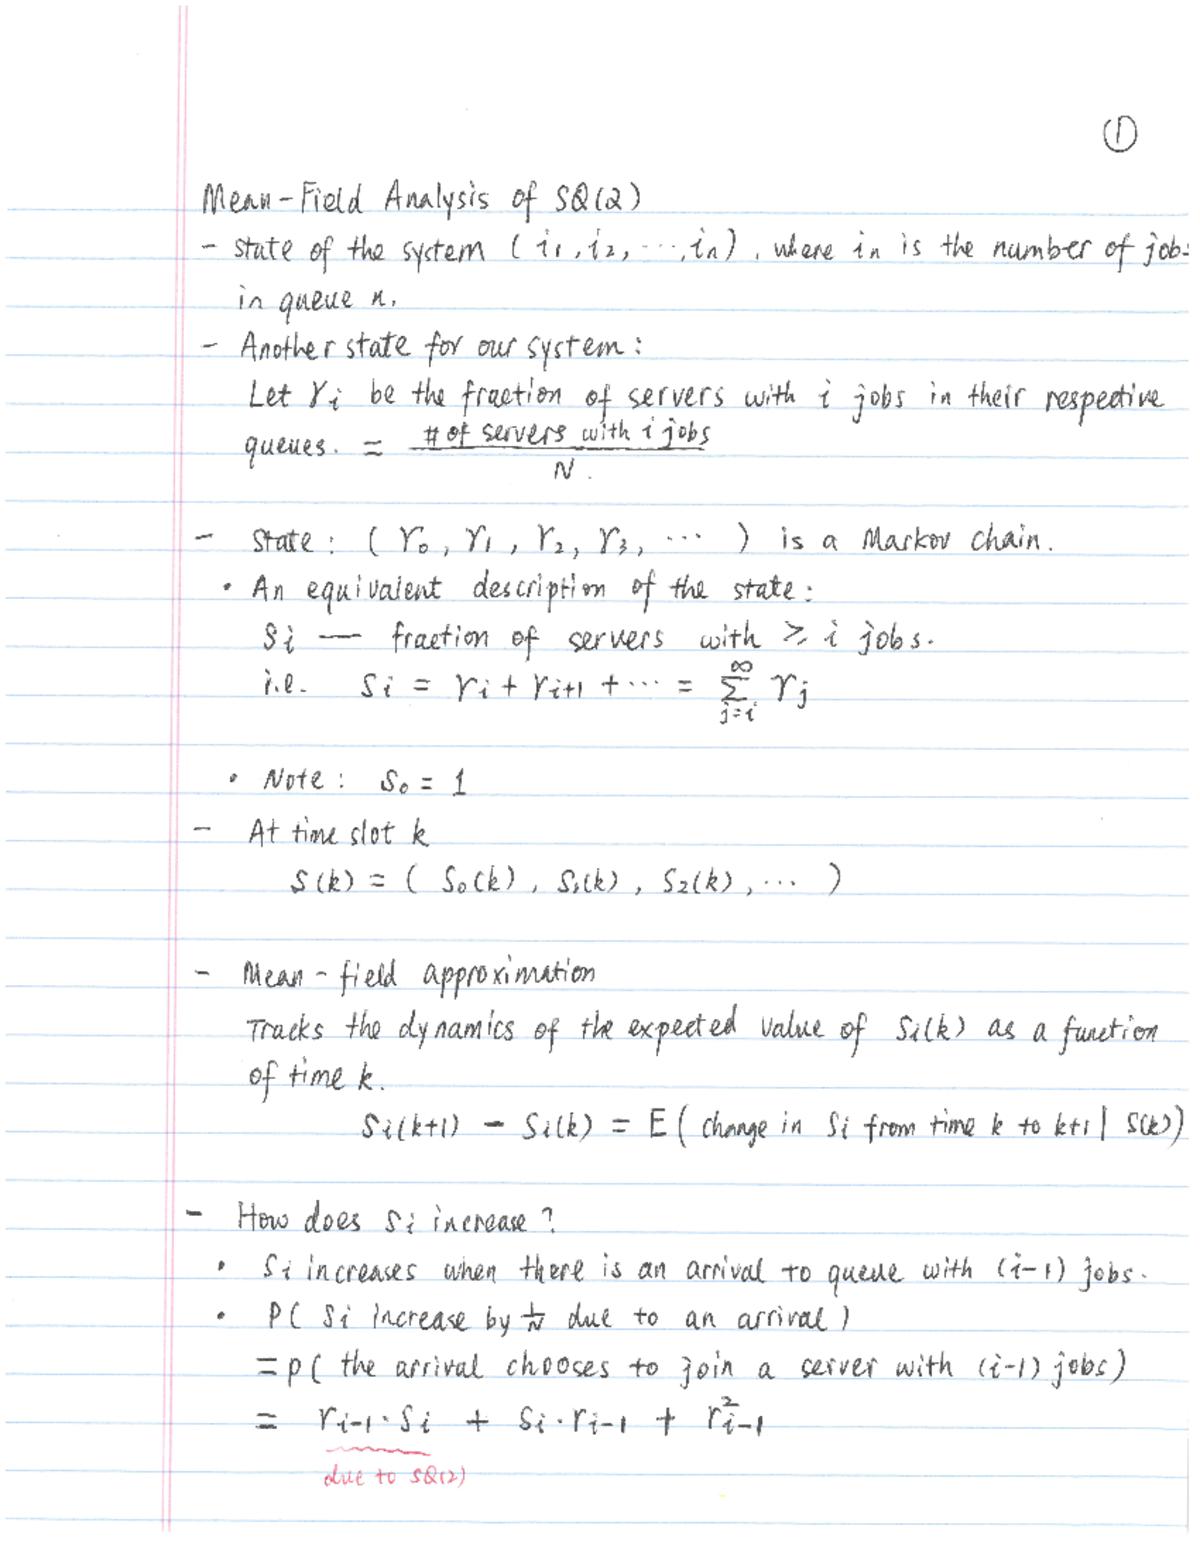 ①
Mean-Field Analysis of SQ(2)
- state of the system (i₁, i₂, ⋯, iₙ), where iₙ is the number of jobs
in queue n.
- Another state for our system:
Let rᵢ be the fraction of servers with i jobs in their respective
queues. = # of servers with i jobs / N.
- State: (r₀, r₁, r₂, r₃, ⋯ ) is a Markov chain.
• An equivalent description of the state:
Sᵢ — fraction of servers with ≥ i jobs.
i.e. Sᵢ = rᵢ + rᵢ₊₁ + ⋯ = ∑_{j=i}^{∞} rⱼ
• Note: S₀ = 1
- At time slot k
S(k) = ( S₀(k), S₁(k), S₂(k), ⋯ )
- Mean-field approximation
Tracks the dynamics of the expected value of Sᵢ(k) as a function
of time k.
Sᵢ(k+1) - Sᵢ(k) = E( change in Sᵢ from time k to k+1 | S(k))
- How does Sᵢ increase?
• Sᵢ increases when there is an arrival to queue with (i-1) jobs.
• P( Sᵢ increase by 1/N due to an arrival)
= P( the arrival chooses to join a server with (i-1) jobs)
= rᵢ₋₁·Sᵢ + Sᵢ·rᵢ₋₁ + r²ᵢ₋₁
due to SQ(2)